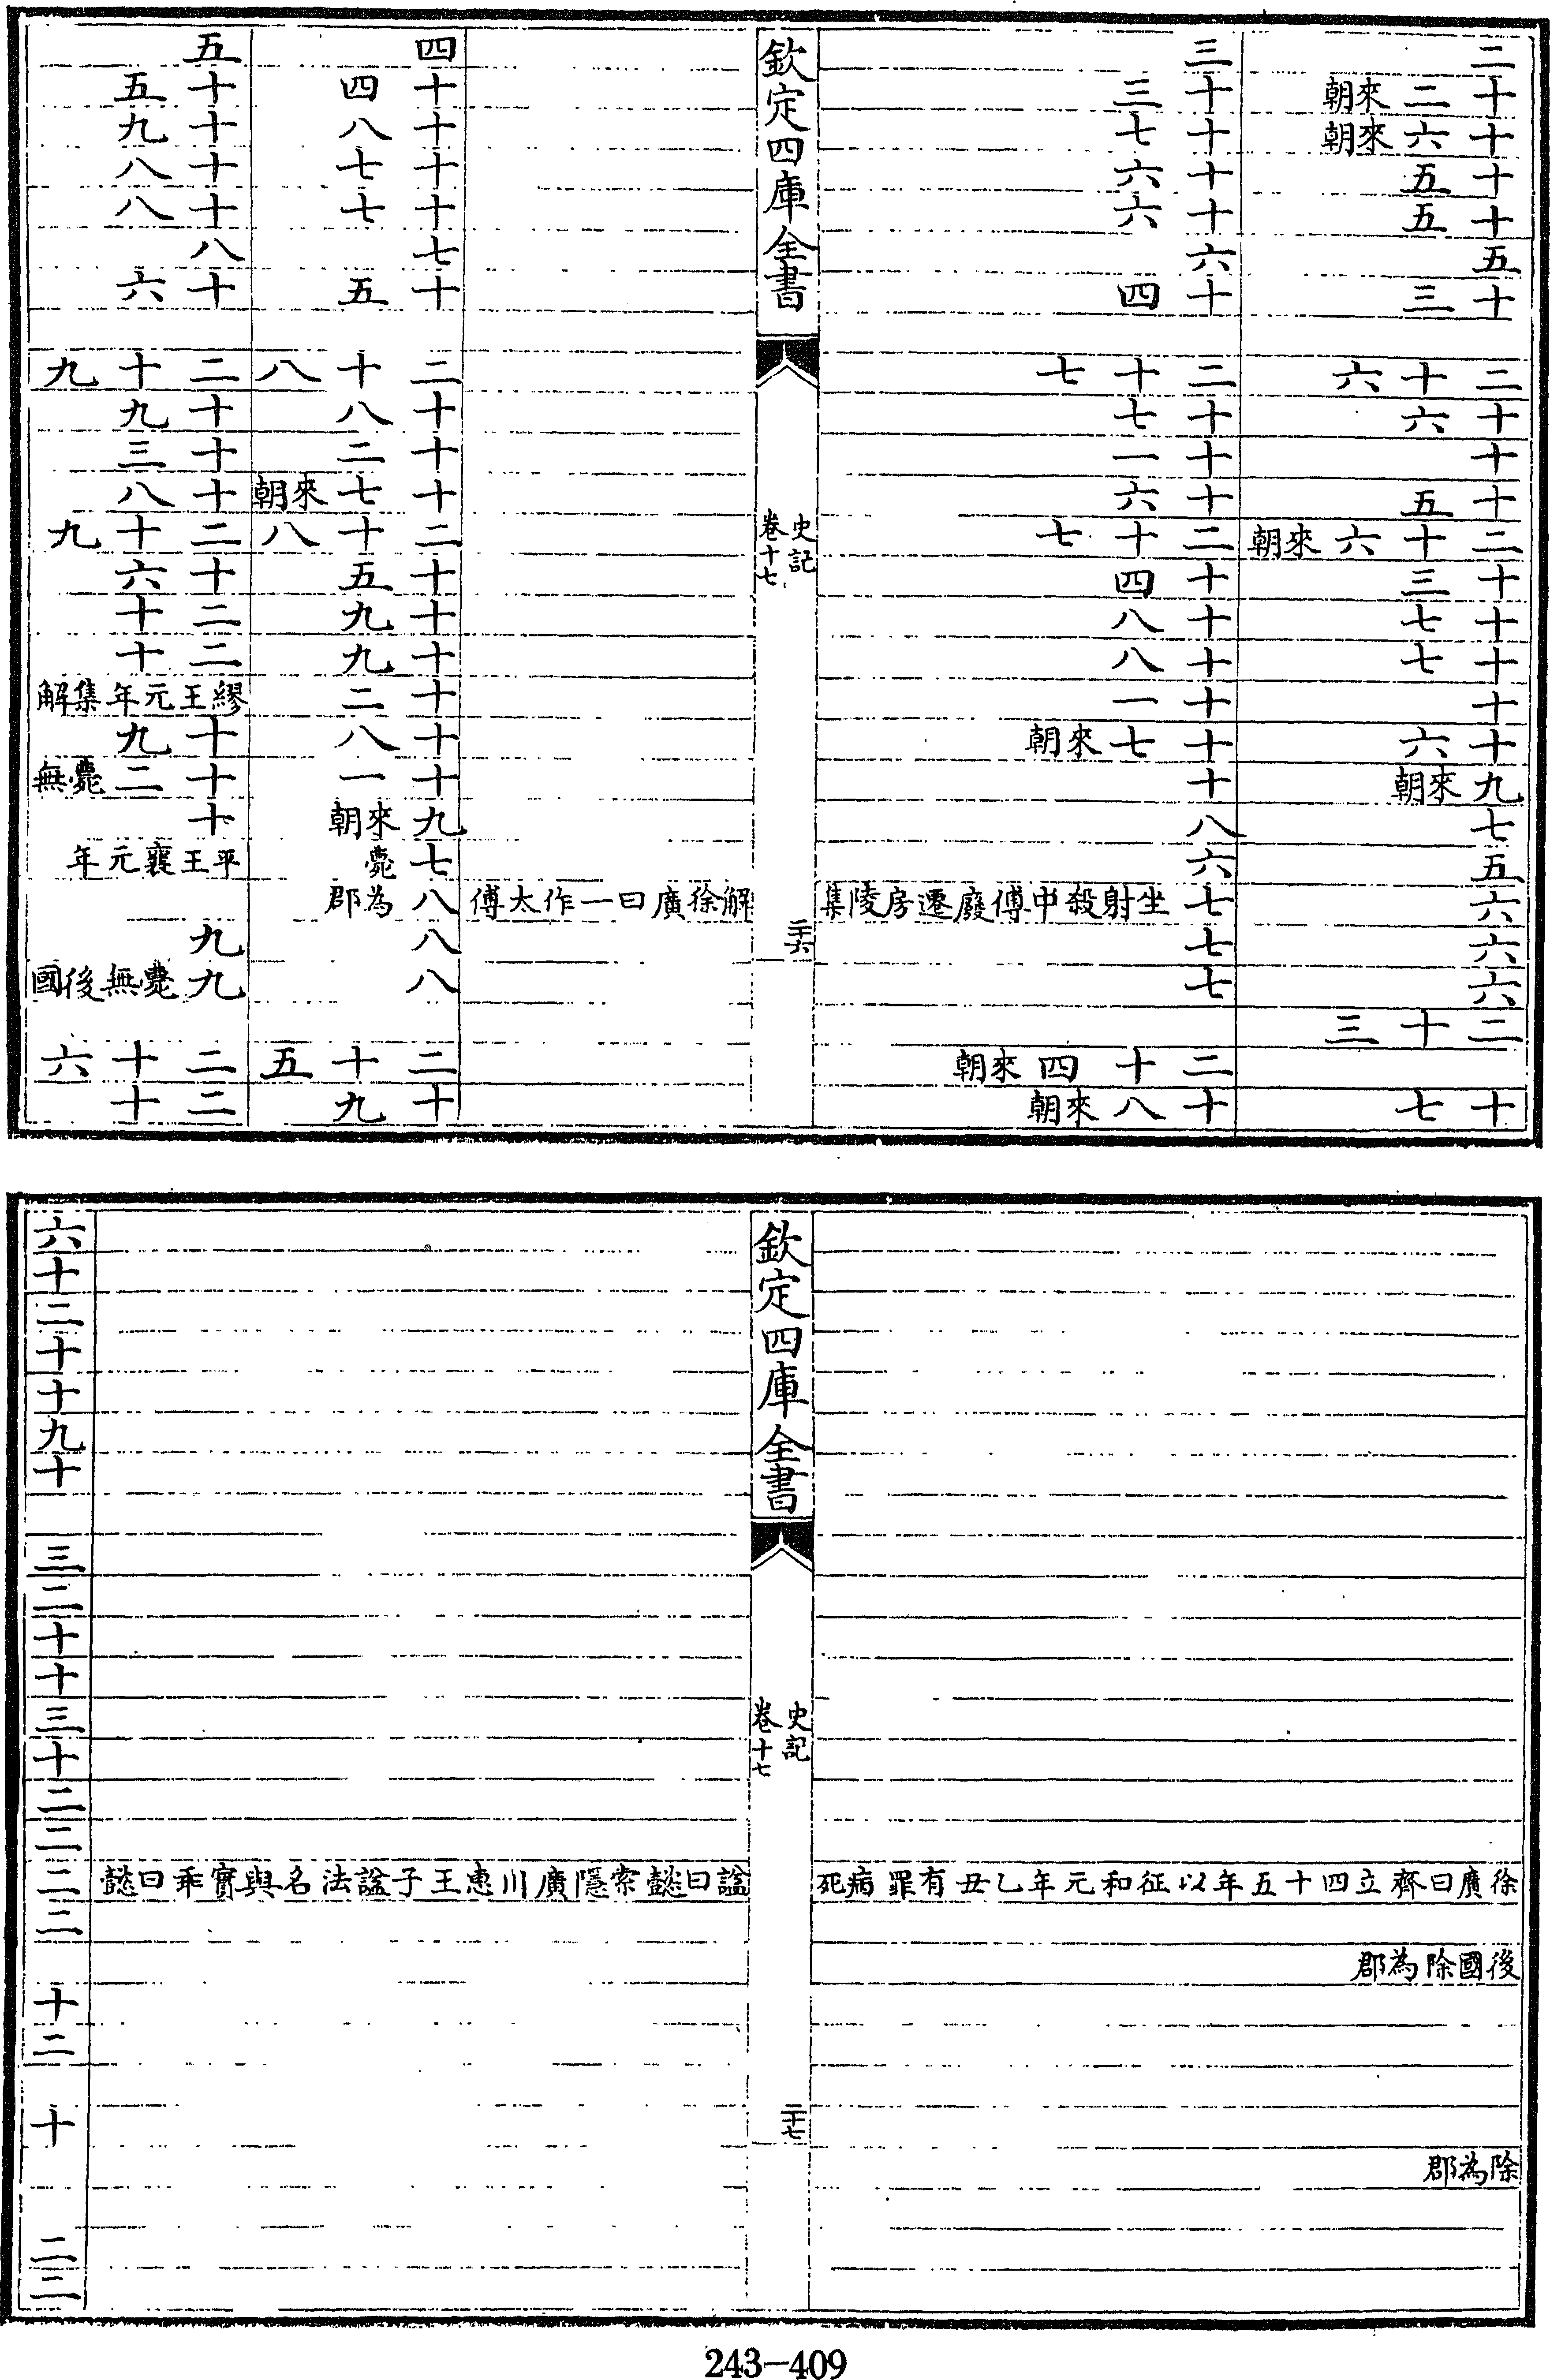 二
十二來朝
十六來朝
十五
十五
五
十三
二十六
十六
十
十五
二十六來朝
十三
十七
十七
十
十六
九來朝
七
五
六
六
六
二十三
十七
三
十三
十七
十六
十六
六
十四
二十七
十七
十一
十六
二十七
十四
十八
十八
十一
十七來朝
十
八
六
七坐射殺中傅廢遷房陵集
七
七
二十四來朝
十八來朝
欽定四庫全書
史記
卷十七
二十六
解徐廣曰一作太傅
四
十四
十八
十七
十七
七
十五
二十八
十八
十二
十七來朝
二十八
十五
十九
十九
十二
十八
十一
九來朝
七薨
八為郡
八
八
二十五
十九
五
十五
十九
十八
十八
八
十六
二十九
十九
十三
十八
二十九
十六
二十
二十
繆王元年集解
十九
十二薨無
十
平王襄元年
九
九薨無後國
二十六
二十
徐廣曰齊立四十五年以征和元年乙丑有罪病死
後國除為郡
除為郡
欽定四庫全書
史記
卷十七
二十七
諡曰懿索隱廣川惠王子諡法名與實乖曰懿
六
十
二
十
十
九
十
三
二
十
十
三
十
二
二
二
二
十
二
十
二
二
243-409